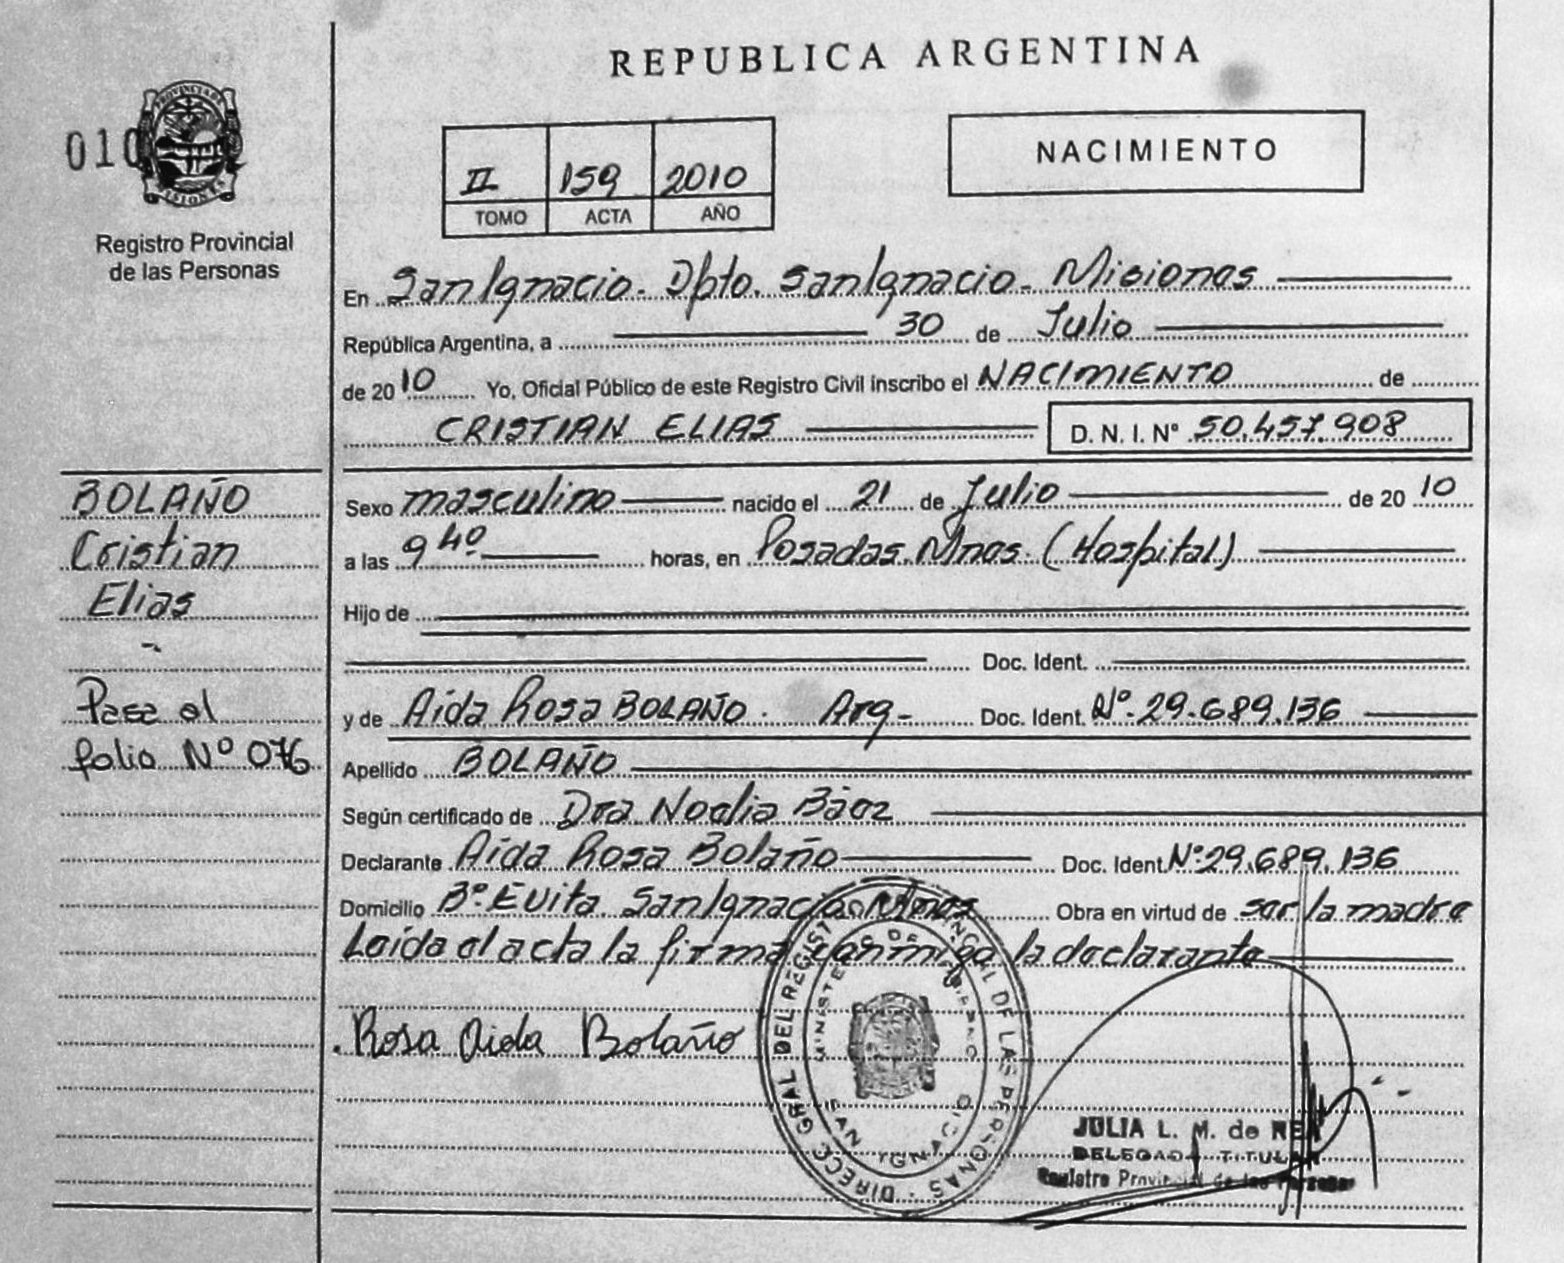 REPUBLICA ARGENTINA
010
PROVINCIA DE MISIONES
Registro Provincial
de las Personas
II 159 2010
TOMO ACTA AÑO
NACIMIENTO
En San Ignacio - Dpto. San Ignacio - Misiones
República Argentina, a 30 de Julio
de 2010 Yo, Oficial Público de este Registro Civil inscribo el NACIMIENTO de
CRISTIAN ELIAS D. N. I. N° 50.457.908
BOLAÑO
Cristian
Elias
Pase al
folio Nº 076
Sexo masculino nacido el 21 de Julio de 2010
a las 9 40 horas, en Posadas. Mnes. (Hospital)
Hijo de
Doc. Ident.
y de Aida Rosa BOLAÑO. Arg- Doc. Ident. Nº 29.689.136
Apellido BOLAÑO
Según certificado de Dra Noelia Báez
Declarante Aida Rosa Bolaño Doc. Ident. Nº 29.689.136
Domicilio Bº Evita San Ignacio Mnes Obra en virtud de ser la madre
Leída el acta la firma conmigo la declarante
Rosa Aida Bolaño
DIRECC GRAL DEL REGISTRO PROVINCIAL DE LAS PERSONAS
MINISTERIO DE GOBIERNO
SAN IGNACIO
JULIA L. M. de
DELEGADA TITULAR
Registro Provincial de las Personas